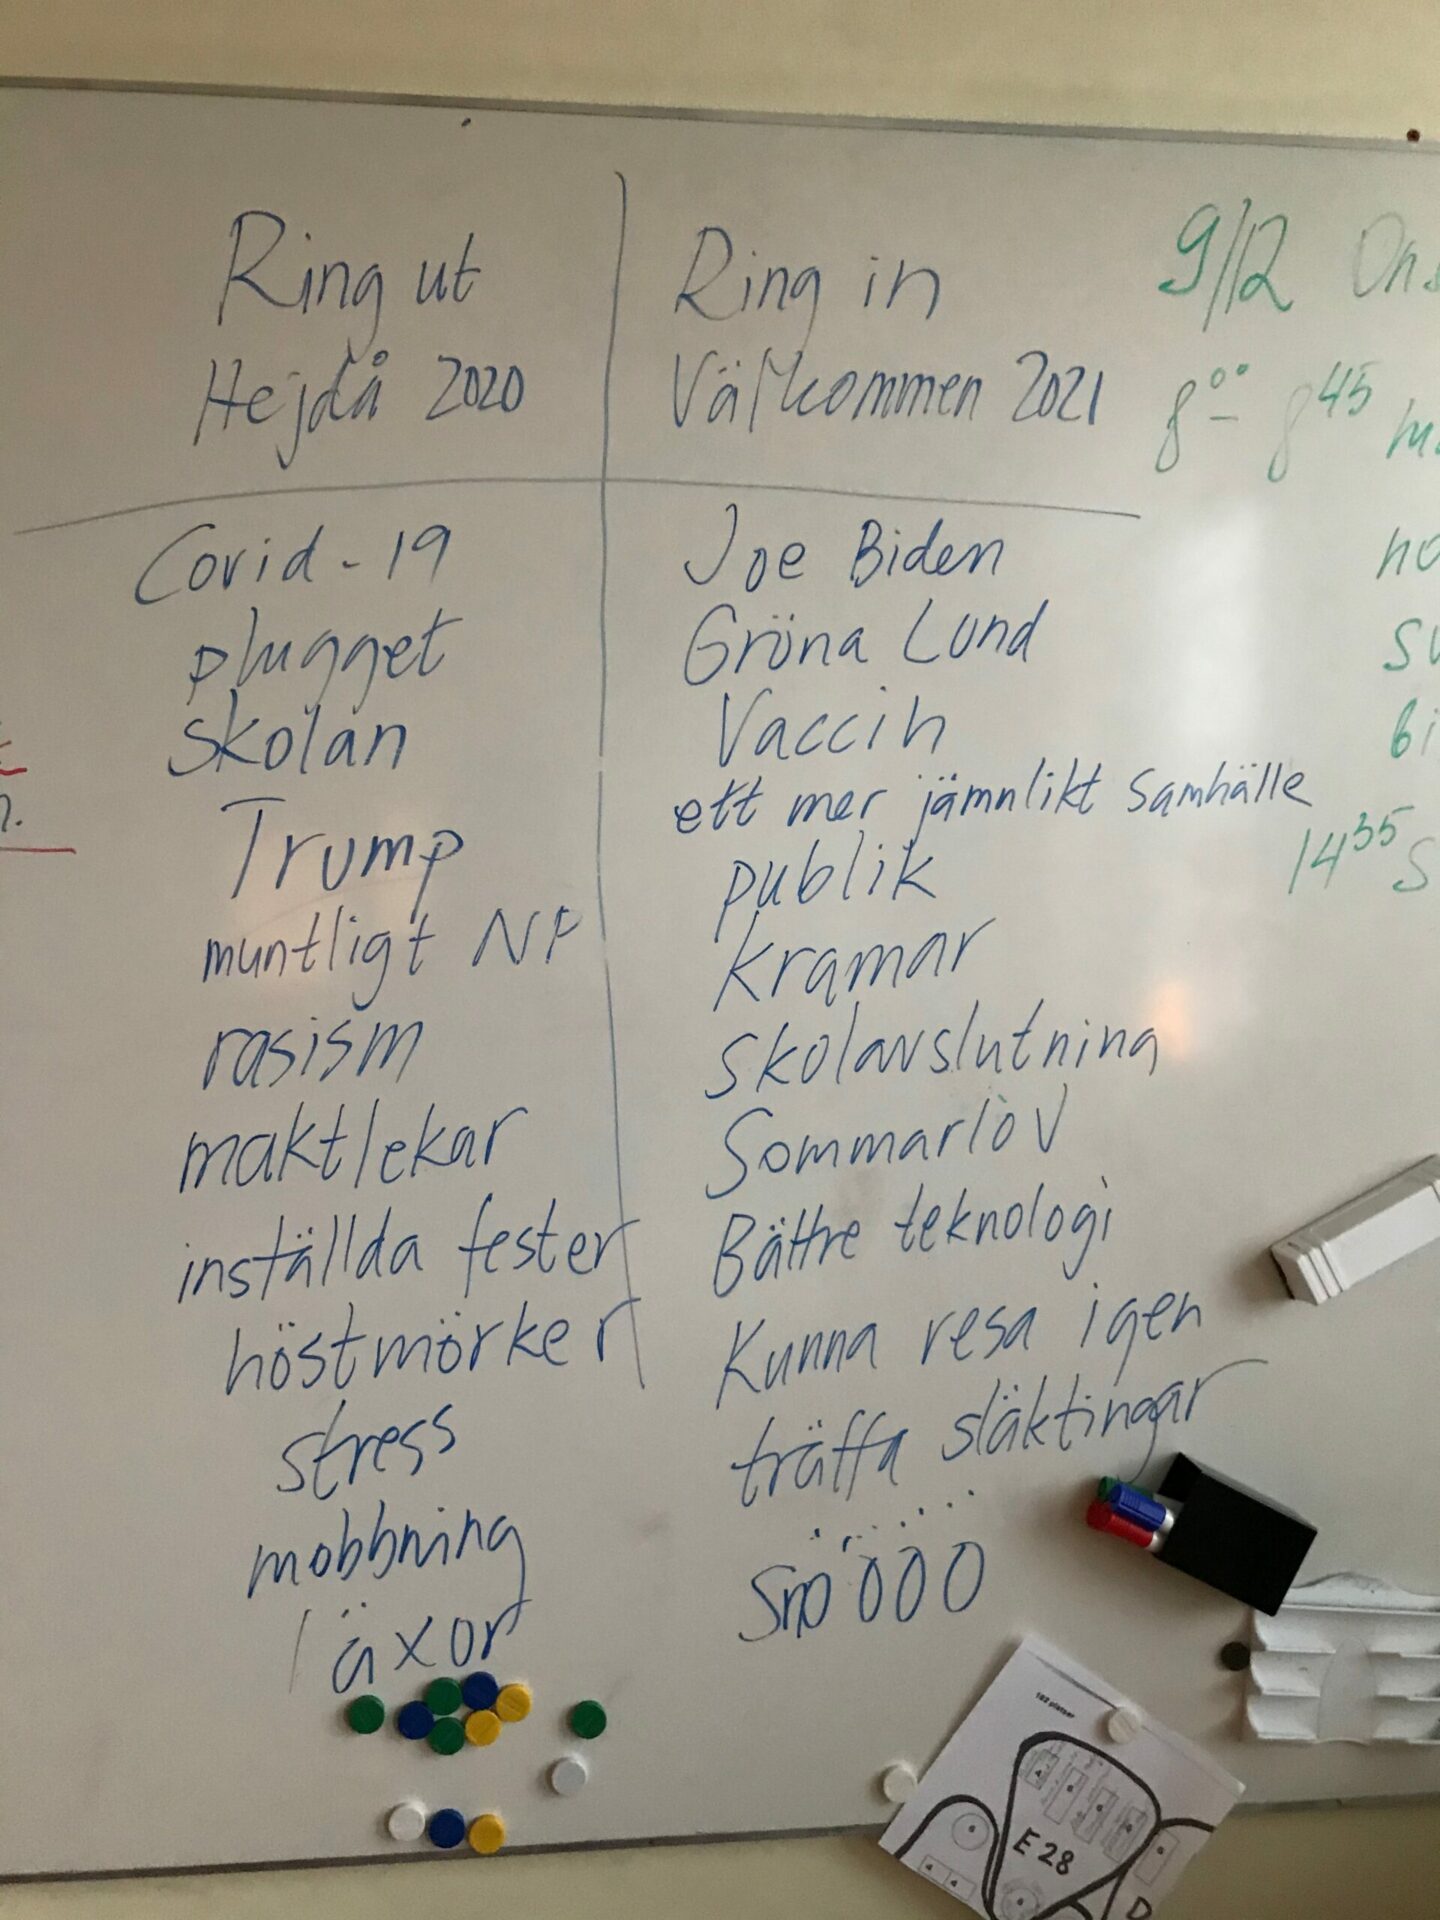 Ring ut
Hejdå 2020
Covid-19
plugget
skolan
Trump
muntligt NP
rasism
maktlekar
inställda fester
höstmörker
stress
mobbning
läxor
Ring in
Välkommen 2021
Joe Biden
Gröna Lund
Vaccin
ett mer jämnlikt samhälle
publik
kramar
skolavslutning
Sommarlov
Bättre teknologi
Kunna resa igen
träffa släktingar
Snöööö
9/12 Ons
8⁰⁰ - 8⁴⁵
14³⁵ S
182 platser
E 28
D